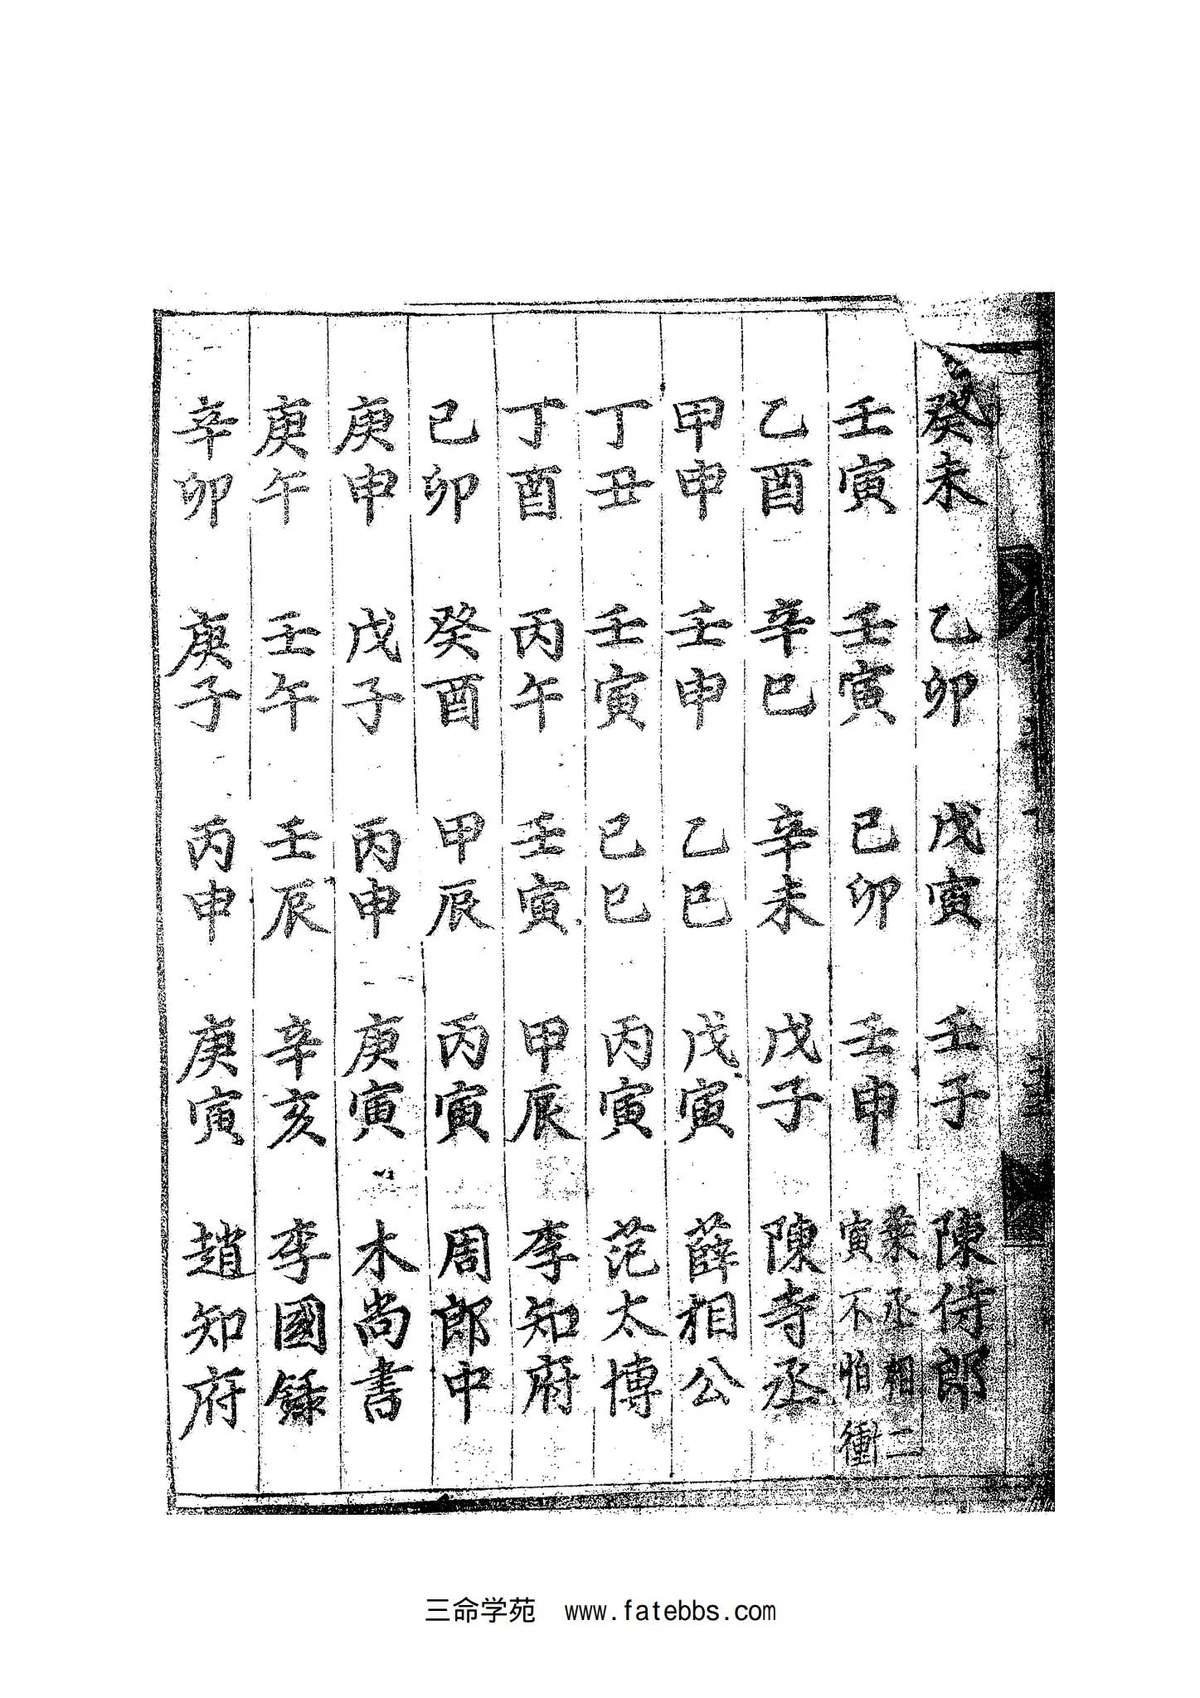 癸未 乙卯 戊寅 壬子 陳侍郎
壬寅 壬寅 己卯 壬申 丞相二寅不怕衝
乙酉 辛巳 辛未 戊子 陳寺丞
甲申 壬申 乙巳 戊寅 薛相公
丁丑 壬寅 己巳 丙寅 范太博
丁酉 丙午 壬寅 甲辰 李知府
己卯 癸酉 甲辰 丙寅 周郎中
庚申 戊子 丙申 庚寅 木尚書
庚午 壬午 壬辰 辛亥 李國錄
辛卯 庚子 丙申 庚寅 趙知府
三命学苑 www.fatebbs.com